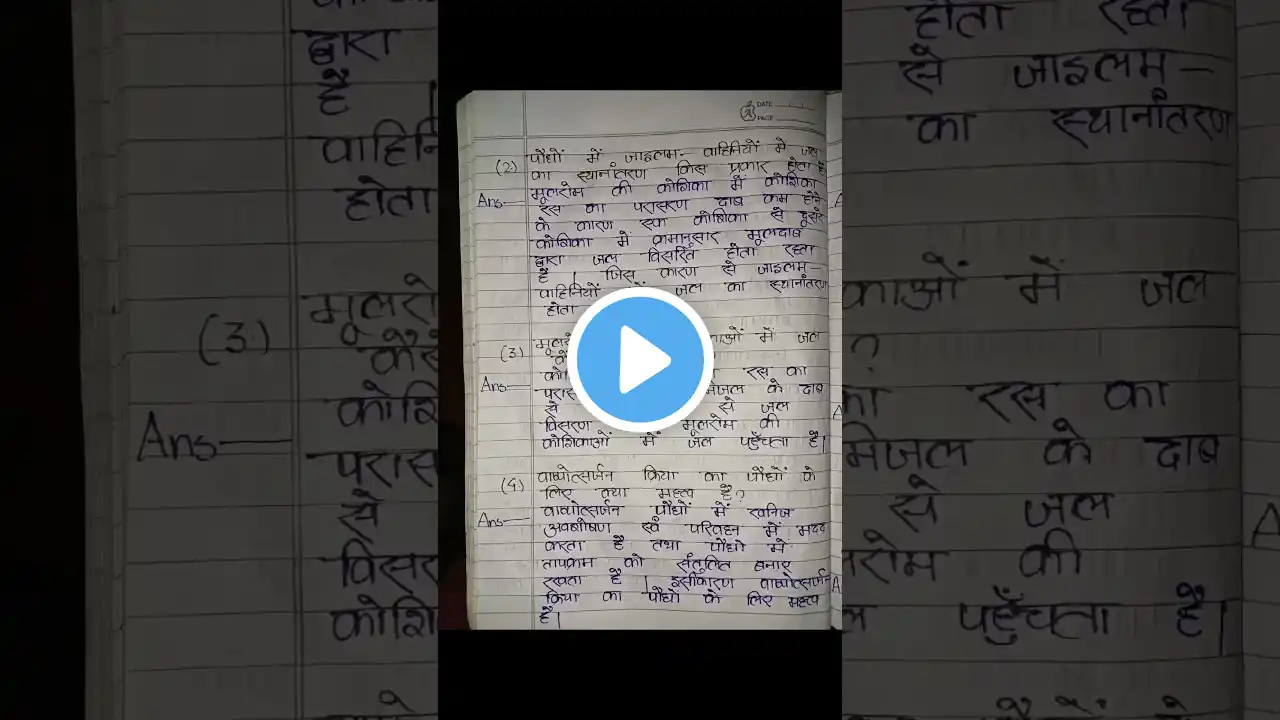 DATE
PAGE
(2) पौधों में जाइलम- वाहिनियों में जल
का स्थानांतरण किस प्रकार होता है
Ans— मूलरोम की कोशिका में कोशिका
रस का परासरण दाब कम होने
के कारण एक कोशिका से दूसरे
कोशिका में क्रमानुसार मूलदाब
द्वारा जल विसरित होता रहता
है। जिस कारण से जाइलम-
वाहिनियों जल का स्थानांतरण
होता
(3) मूलरो काओं में जल
कै
Ans— को रस का
परास मिजल के दाब
से से जल
विसरण मूलरोम की
कोशिकाओं में जल पहुँचता है।
(4) वाष्पोत्सर्जन क्रिया का पौधों के
लिए क्या महत्व है?
Ans— वाष्पोत्सर्जन पौधों में खनिज
अवशोषण एवं परिवहन में मदद
करता है तथा पौधों में
तापक्रम को संतुलित बनाए
रखता है। इसीकारण वाष्पोत्सर्जन
क्रिया का पौधों के लिए महत्व
है।